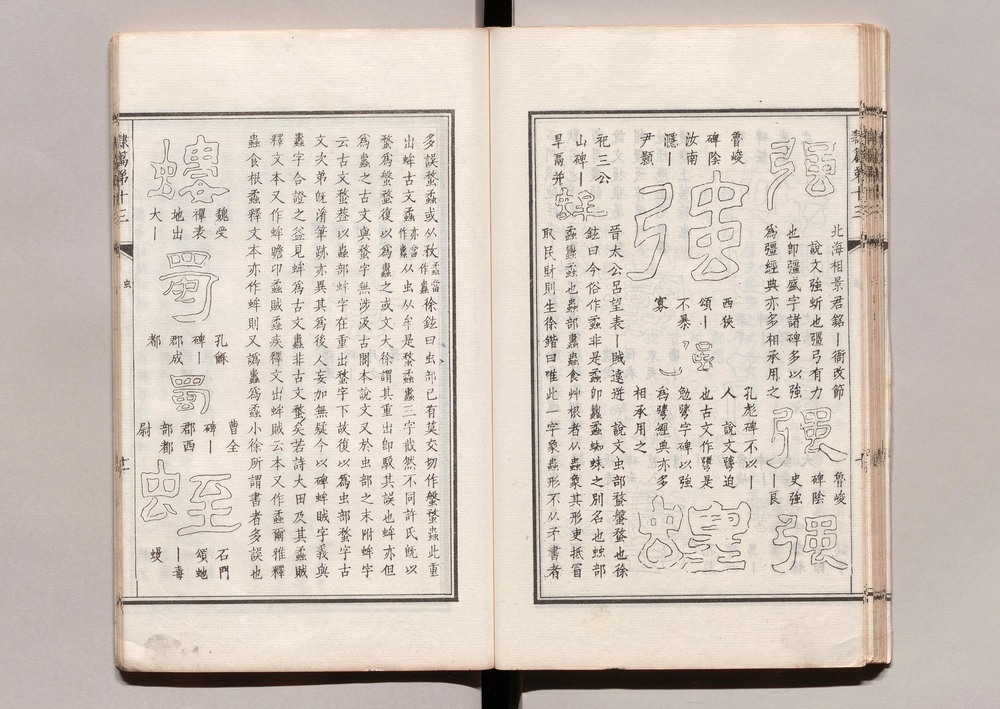 隸篇第十三
强
北海相景君銘｜衙改節
說文強蚚也彊弓有力
也卽彊盛字諸碑多以強
爲彊經典亦多相承用之
强
魯峻
碑陰
史強
｜良
强
魯峻
碑陰
汝南
濦｜
尹顥
强
西狹
頌｜
不暴
寡
强
孔彪碑不以｜
人 說文勥迫
也古文作𢐹是
勉勥字碑以強
爲勥經典亦多
相承用之
蝗
祀三公
山碑｜
旱鬲并
蛑
晉太公呂望表｜賊遠迸 說文虫部蝥盤蝥也徐
鉉曰今俗作蟊非是蟊卽蠿蟊蜘蛛之別名也䖵部
蟊蠿蟊也蟲部蠹蟊蟲食艸根者从蟲象其形吏抵冒
取民財則生徐鍇曰唯此一字象蟲形不从矛書者
多誤蝥蟊或从敄
徐鉉曰虫部已有莫交切作盤蝥蟲此重
出蛑古文蟊
从虫从牟是蝥蟊蠹三字截然不同許氏旣以
蝥爲盤蝥復以蝥爲蟊之或文大徐謂其重出卽駮其誤也蛑亦但
爲蟊之古文與蝥字無涉汲古閣本說文又於虫部之末附蛑字
云古文蝥葢以蟲部蛑字在重出蝥字下故復以爲虫部蝥字古
文次弟旣淆筆跡亦異其爲後人妄加無疑今以碑蛑賊字義與
蠹字合證之益見蛑爲古文蠹非古文蝥矣若詩大田及其蟊賊
釋文本又作蛑瞻卬蟊賊蟊疾釋文出蛑賊云本又作蟊爾雅釋
蟲食根蟊釋文本亦作蛑則又譌蠹爲蟊小徐所謂書者多誤也
螻
魏受
禪表
地出
大｜
蜀
孔龢
碑｜
郡成
都
蜀
曹全
碑｜
郡西
部都
尉
蛭
石門
頌虵
｜毒
蟃
隸篇第十三
虫